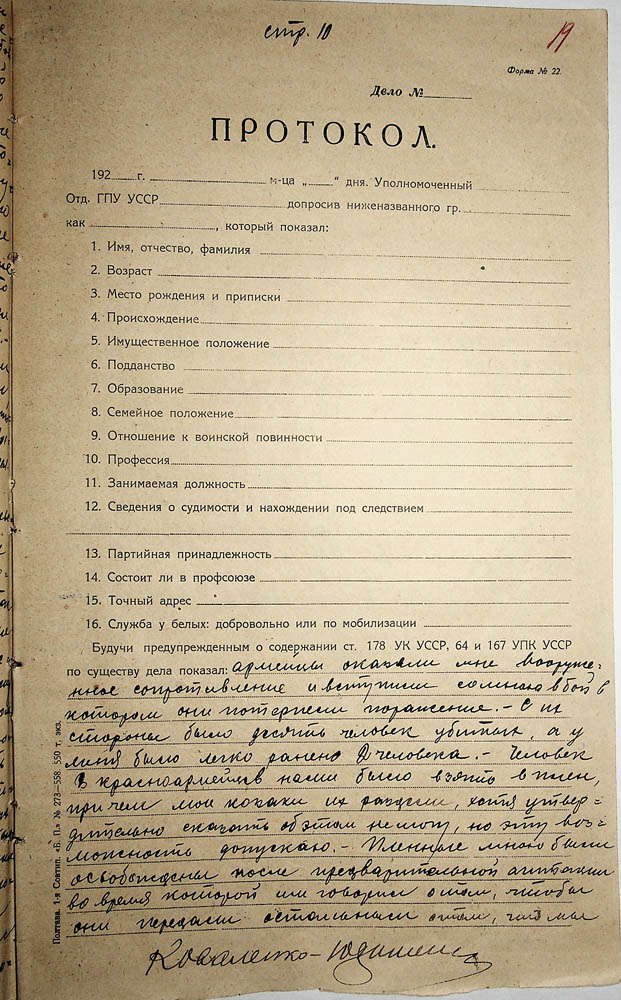 стр. 10
19
Форма № 22.
Дело №
ПРОТОКОЛ.
192 г. м-ца „ “ дня. Уполномоченный
Отд. ГПУ УССР допросив ниженазванного гр.
как , который показал:
1. Имя, отчество, фамилия
2. Возраст
3. Место рождения и приписки
4. Происхождение
5. Имущественное положение
6. Подданство
7. Образование
8. Семейное положение
9. Отношение к воинской повинности
10. Профессия
11. Занимаемая должность
12. Сведения о судимости и нахождении под следствием
13. Партийная принадлежность
14. Состоит ли в профсоюзе
15. Точный адрес
16. Служба у белых: добровольно или по мобилизации
Будучи предупрежденным о содержании ст. 178 УК УССР, 64 и 167 УПК УССР
по существу дела показал: армейцы оказали мне вооруже-
нное сопротивление и вступили со мною в бой в
котором они потерпели поражение. – С их
стороны было десять человек убитых, а у
меня было легко ранено 2 человека. – Человек
8 красноармейцев нами было взято в плен,
при чем мои козаки их раздели, хотя утвер-
дительно сказать об этом не могу, но эту воз-
можность допускаю. – Пленные мною были
освобождены после предварительной агитации
во время которой им говорил о том, чтобы
они передали остальным о том, что мы
Полтава. 1-я Совтип. № 273—558. 550 т. экз.